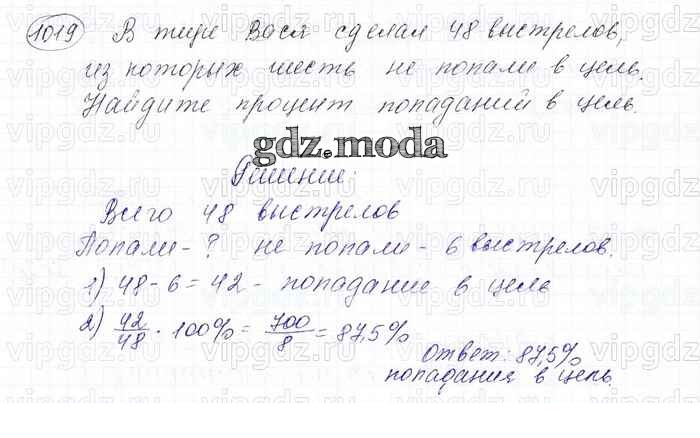 1019 В тире Вася сделал 48 выстрелов,
из которых шесть не попали в цель.
Найдите процент попаданий в цель.
gdz.moda
Решение:
Всего 48 выстрелов
Попали - ? не попали - 6 выстрелов.
1) 48 - 6 = 42 - попадание в цель
2) 42/48 · 100% = 700/8 = 87,5%
Ответ: 87,5%
попадания в цель.